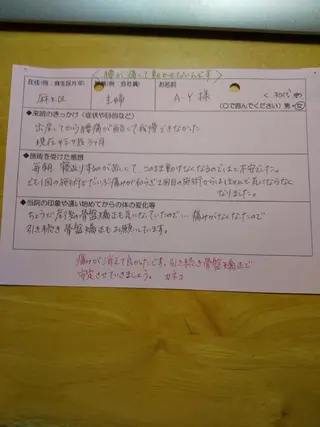 腰が痛くて動かせないんです
在住(例:麻生区片平) 職業(例:会社員) お名前
麻生区 主婦 A・Y様 く30代 女
(○で囲んでください) 男・女
●来院のきっかけ(症状や目的など)
出産してから腰痛が出てきて我慢できなかった
現在 产后
●施術を受けた感想
毎朝、寝返りするのが苦しくて、このまま動けなくなるのではと不安でした。
でも1回の施術でだいぶ痛みが和らぎ2回目の施術からはほとんど気にならなく
なりました。
●当院の印象や通い始めてからの体の変化等
ちょうど産後の骨盤矯正も気になっていたので… 痛みがなくなったので
引き続き骨盤矯正もお願いしています。
痛みが消えて良かったです。引き続き骨盤矯正で
安定させていきましょう。 カネコ